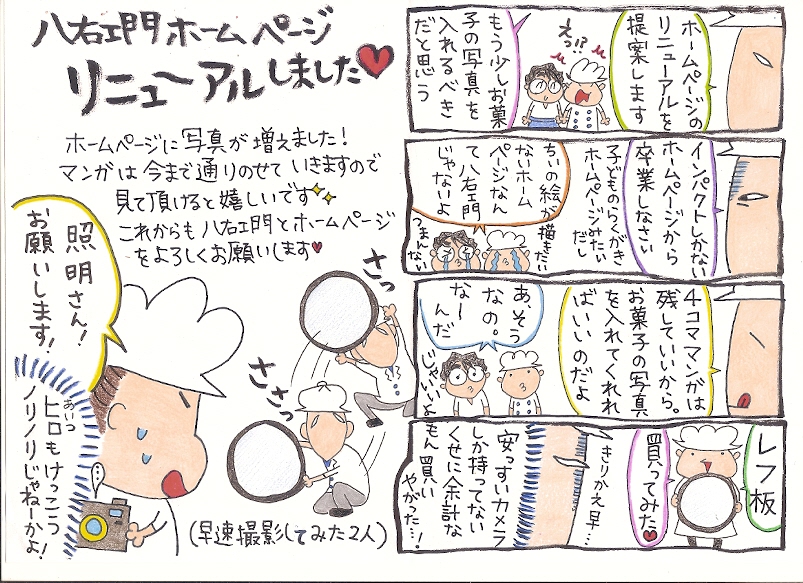 八右ェ門ホームページ
リニューアルしました♥
ホームページに写真が増えました!
マンガは今まで通りのせていきますので
見て頂けると嬉しいです
これからも八右ェ門とホームページ
をよろしくお願いします♥
照明さん!
お願いします!
ささっ
さっ
あいつ
ヒロもけっこう
ノリノリじゃねーかよ!
(早速撮影してみた2人)
ホームページの
リニューアルを
提案します
えっ!?
もう少しお菓
子の写真を
入れるべき
だと思う
インパクトしかない
ホームページから
卒業しなさい
子どものらくがき
ホームページみたい
だし
ちぃの絵が描きたい
ないホーム
ページなん
て八右ェ門
じゃないよ
つまんない
4コママンガは
残していいから。
お菓子の写真
を入れてくれれ
ばいいのだよ
あ、そう
なの。
なーんだ
じゃいいよ
レフ板
買ってみた♥
きりかえ早…
安っすいカメラ
しか持ってない
くせに余計な
もん買い
やがった…!